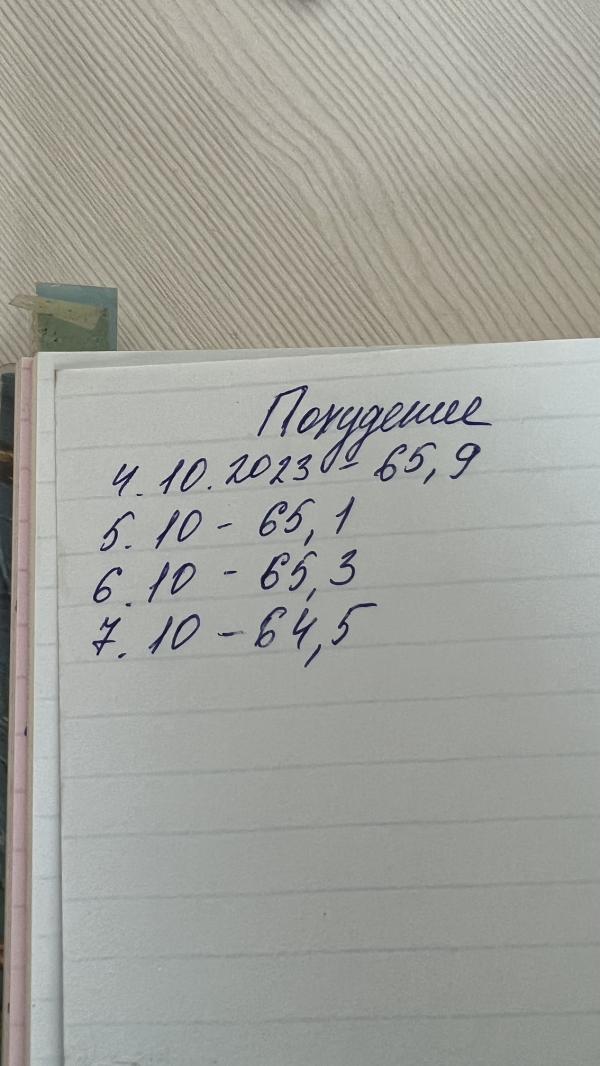 Похудение
4.10.2023 - 65,9
5.10 - 65,1
6.10 - 65,3
7.10 - 64,5